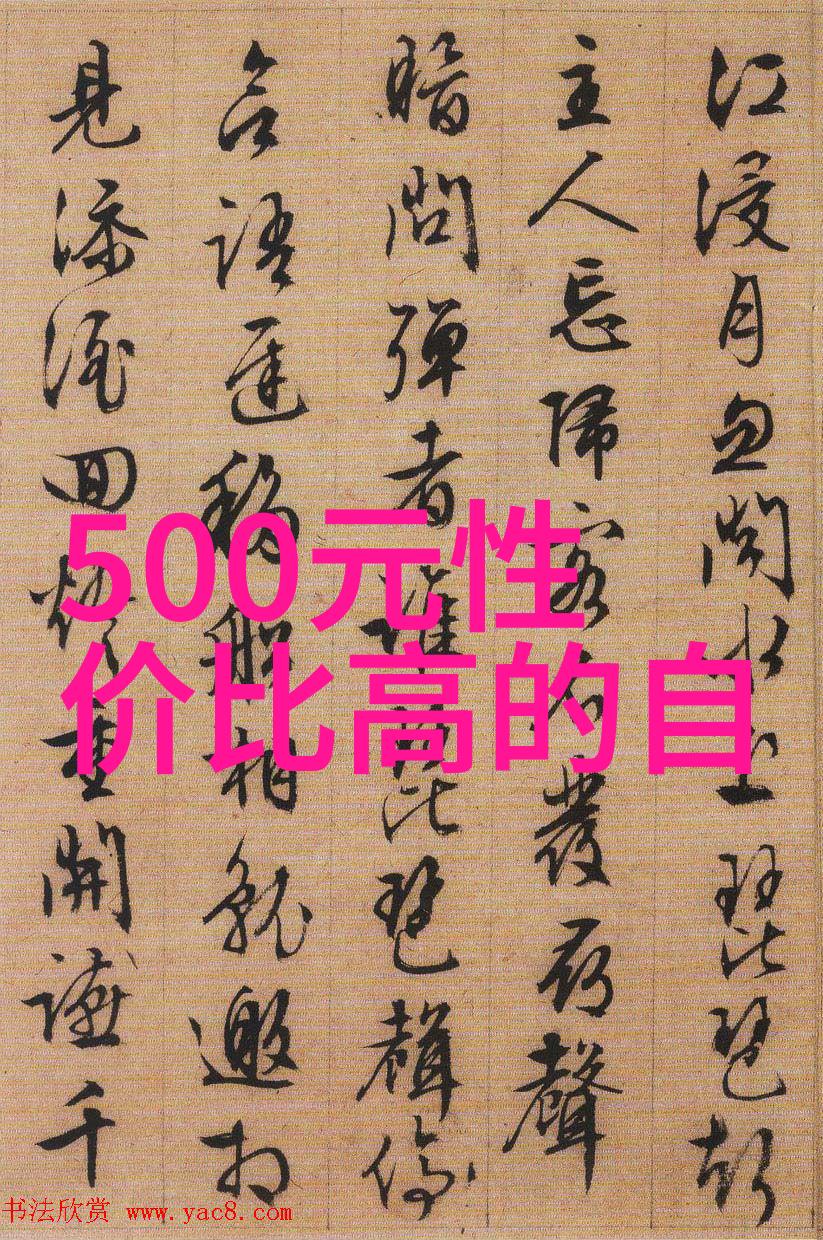 江浸月忽聞水上琵琶
主人忘歸客不發尋聲
暗問彈者誰琵琶聲停
語遲移船相就邀相
見添酒回燈重開讌千
500元性
价比高的自
书法欣赏 www.yac8.com